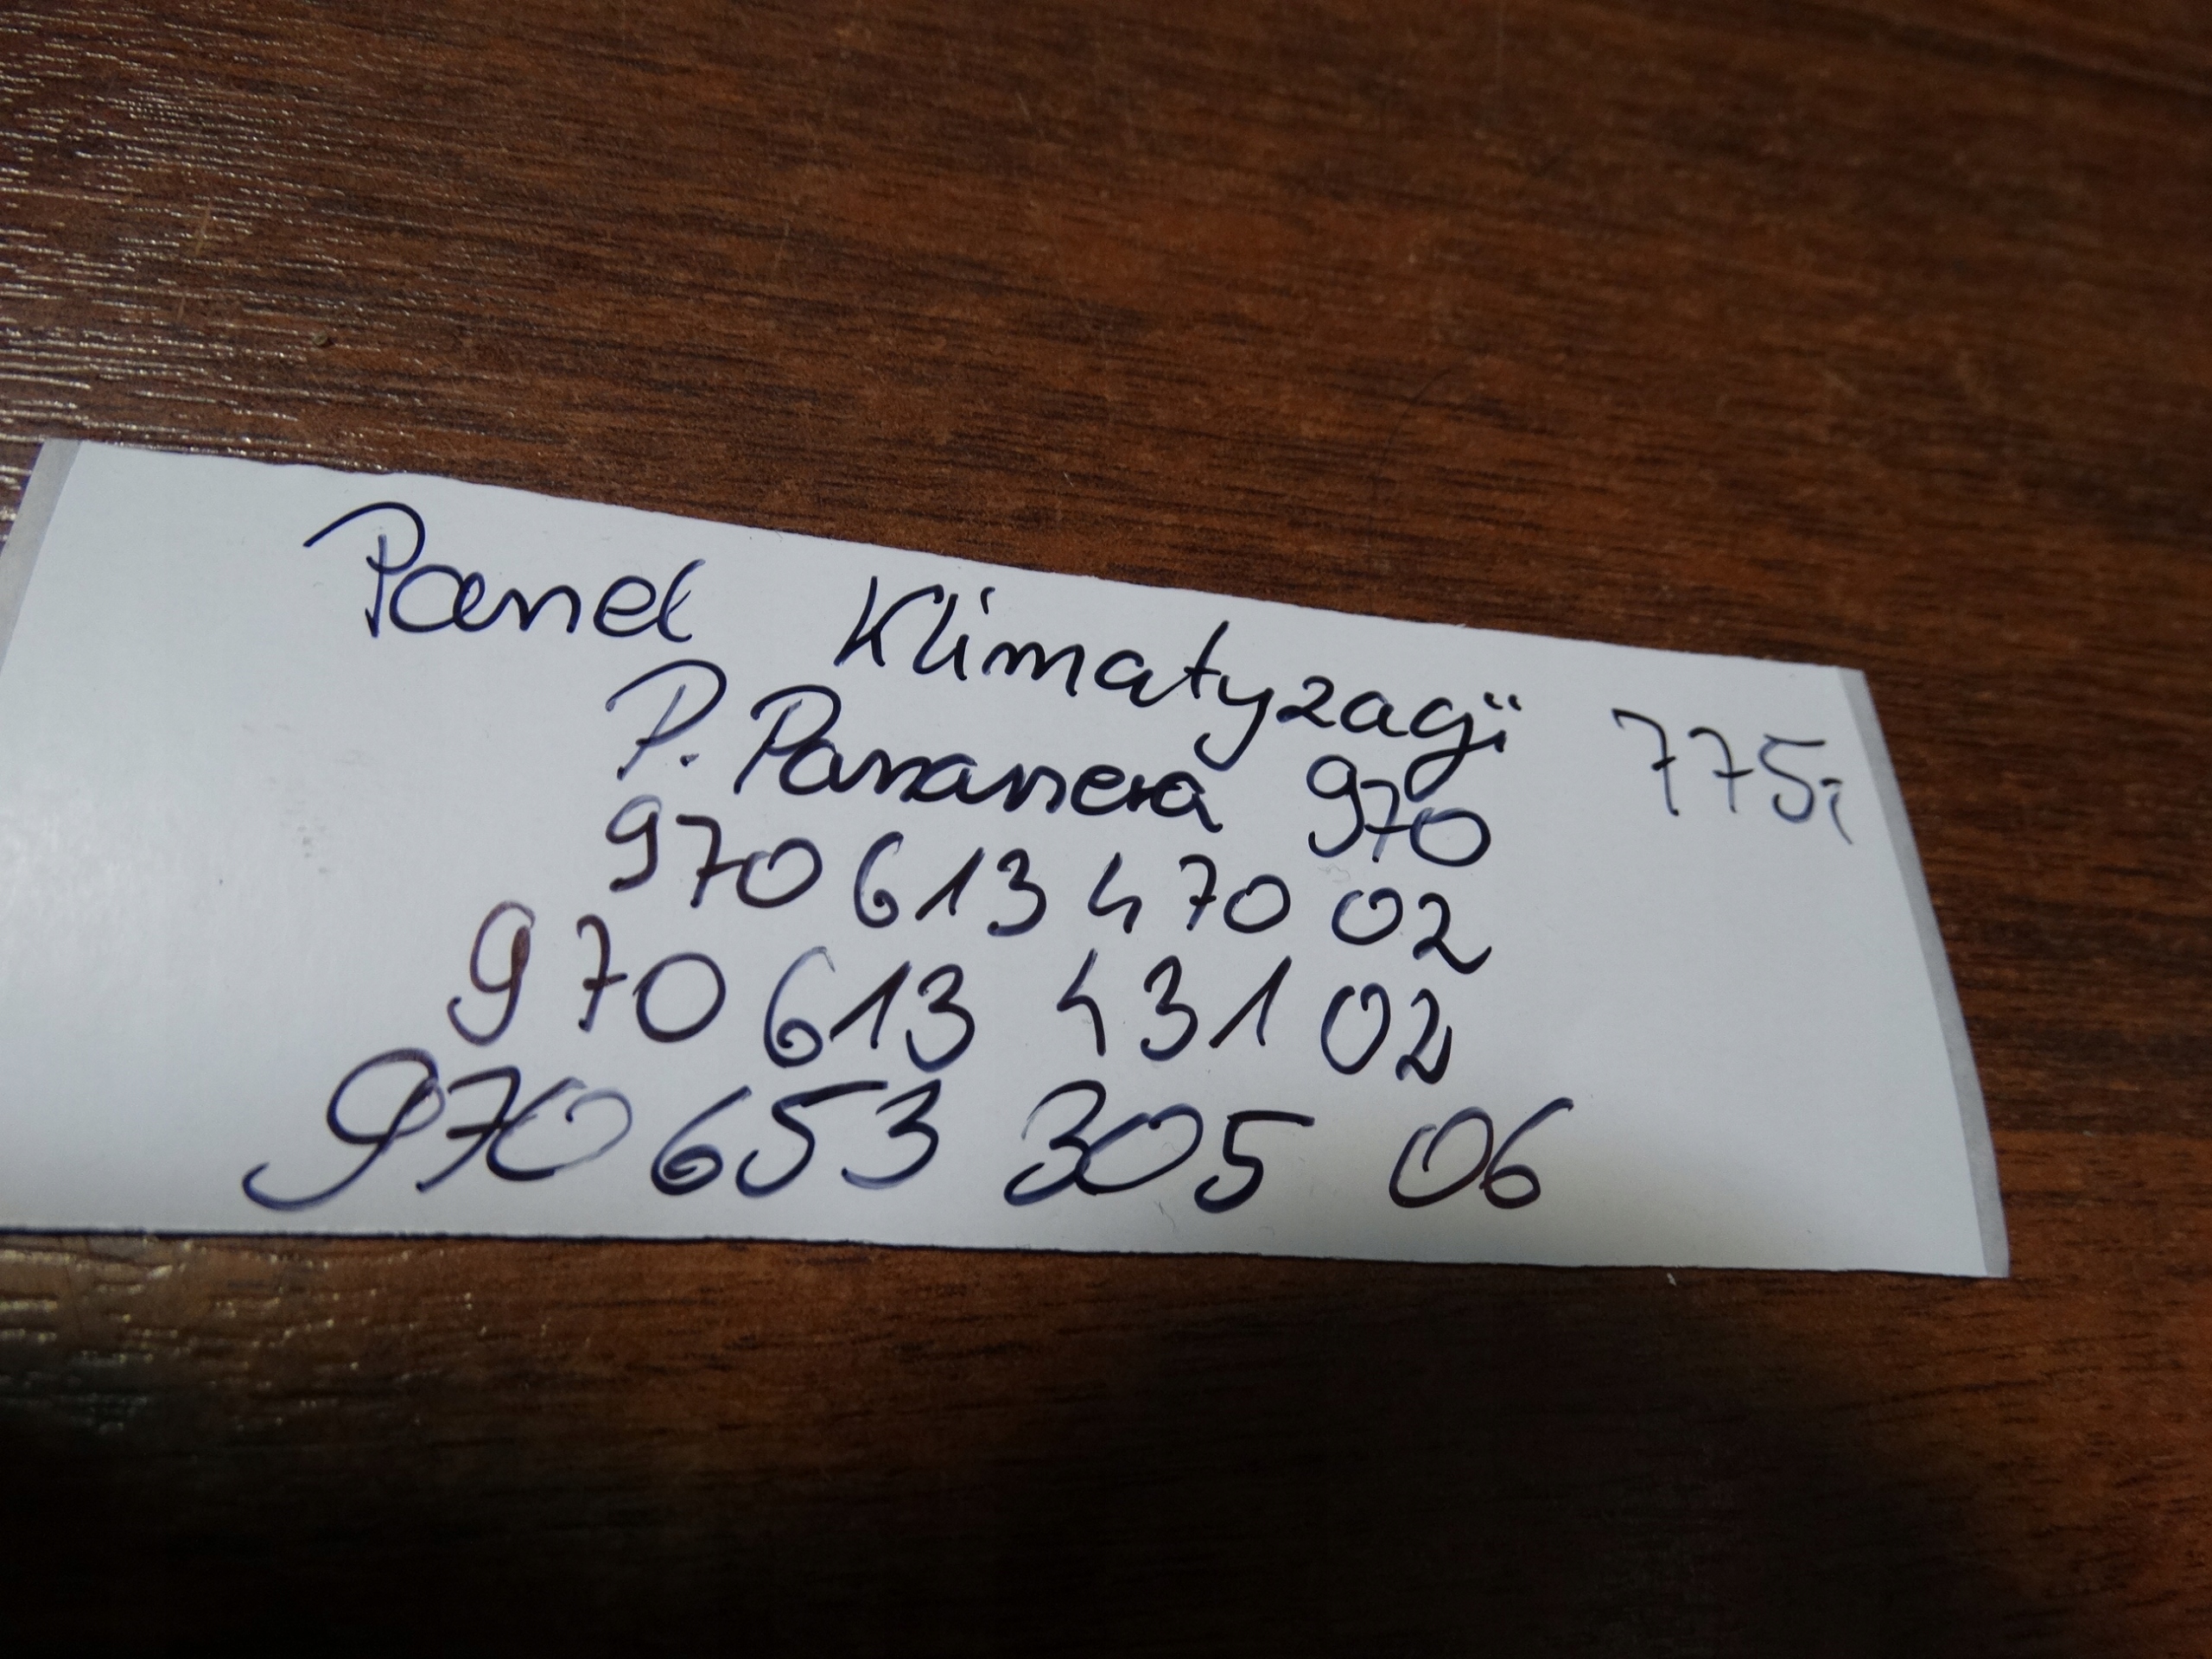 Panel Klimatyzacji
775,-
P. Panamera 970
970 613 470 02
970 613 431 02
970 653 305 06